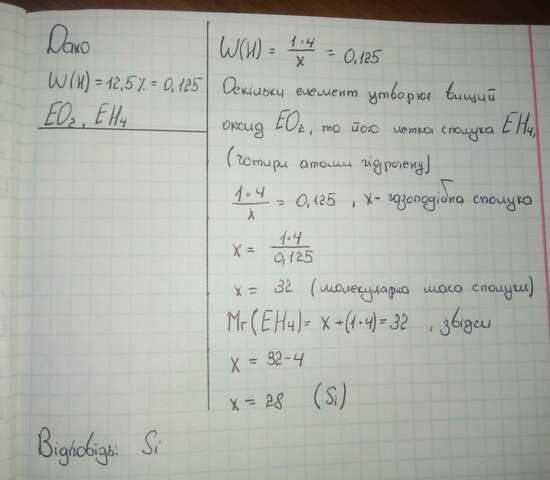 Дано
W(H) = 12,5% = 0,125
EO₂, EH₄
W(H) = 1·4/x = 0,125
Оскільки елемент утворює вищий
оксид EO₂, то його летка сполука EH₄,
(чотири атоми гідрогену)
1·4/x = 0,125, x - газоподібна сполука
x = 1·4/0,125
x = 32 (молекулярна маса сполуки)
Mr(EH₄) = x + (1·4) = 32, звідси
x = 32-4
x = 28 (Si)
Відповідь: Si